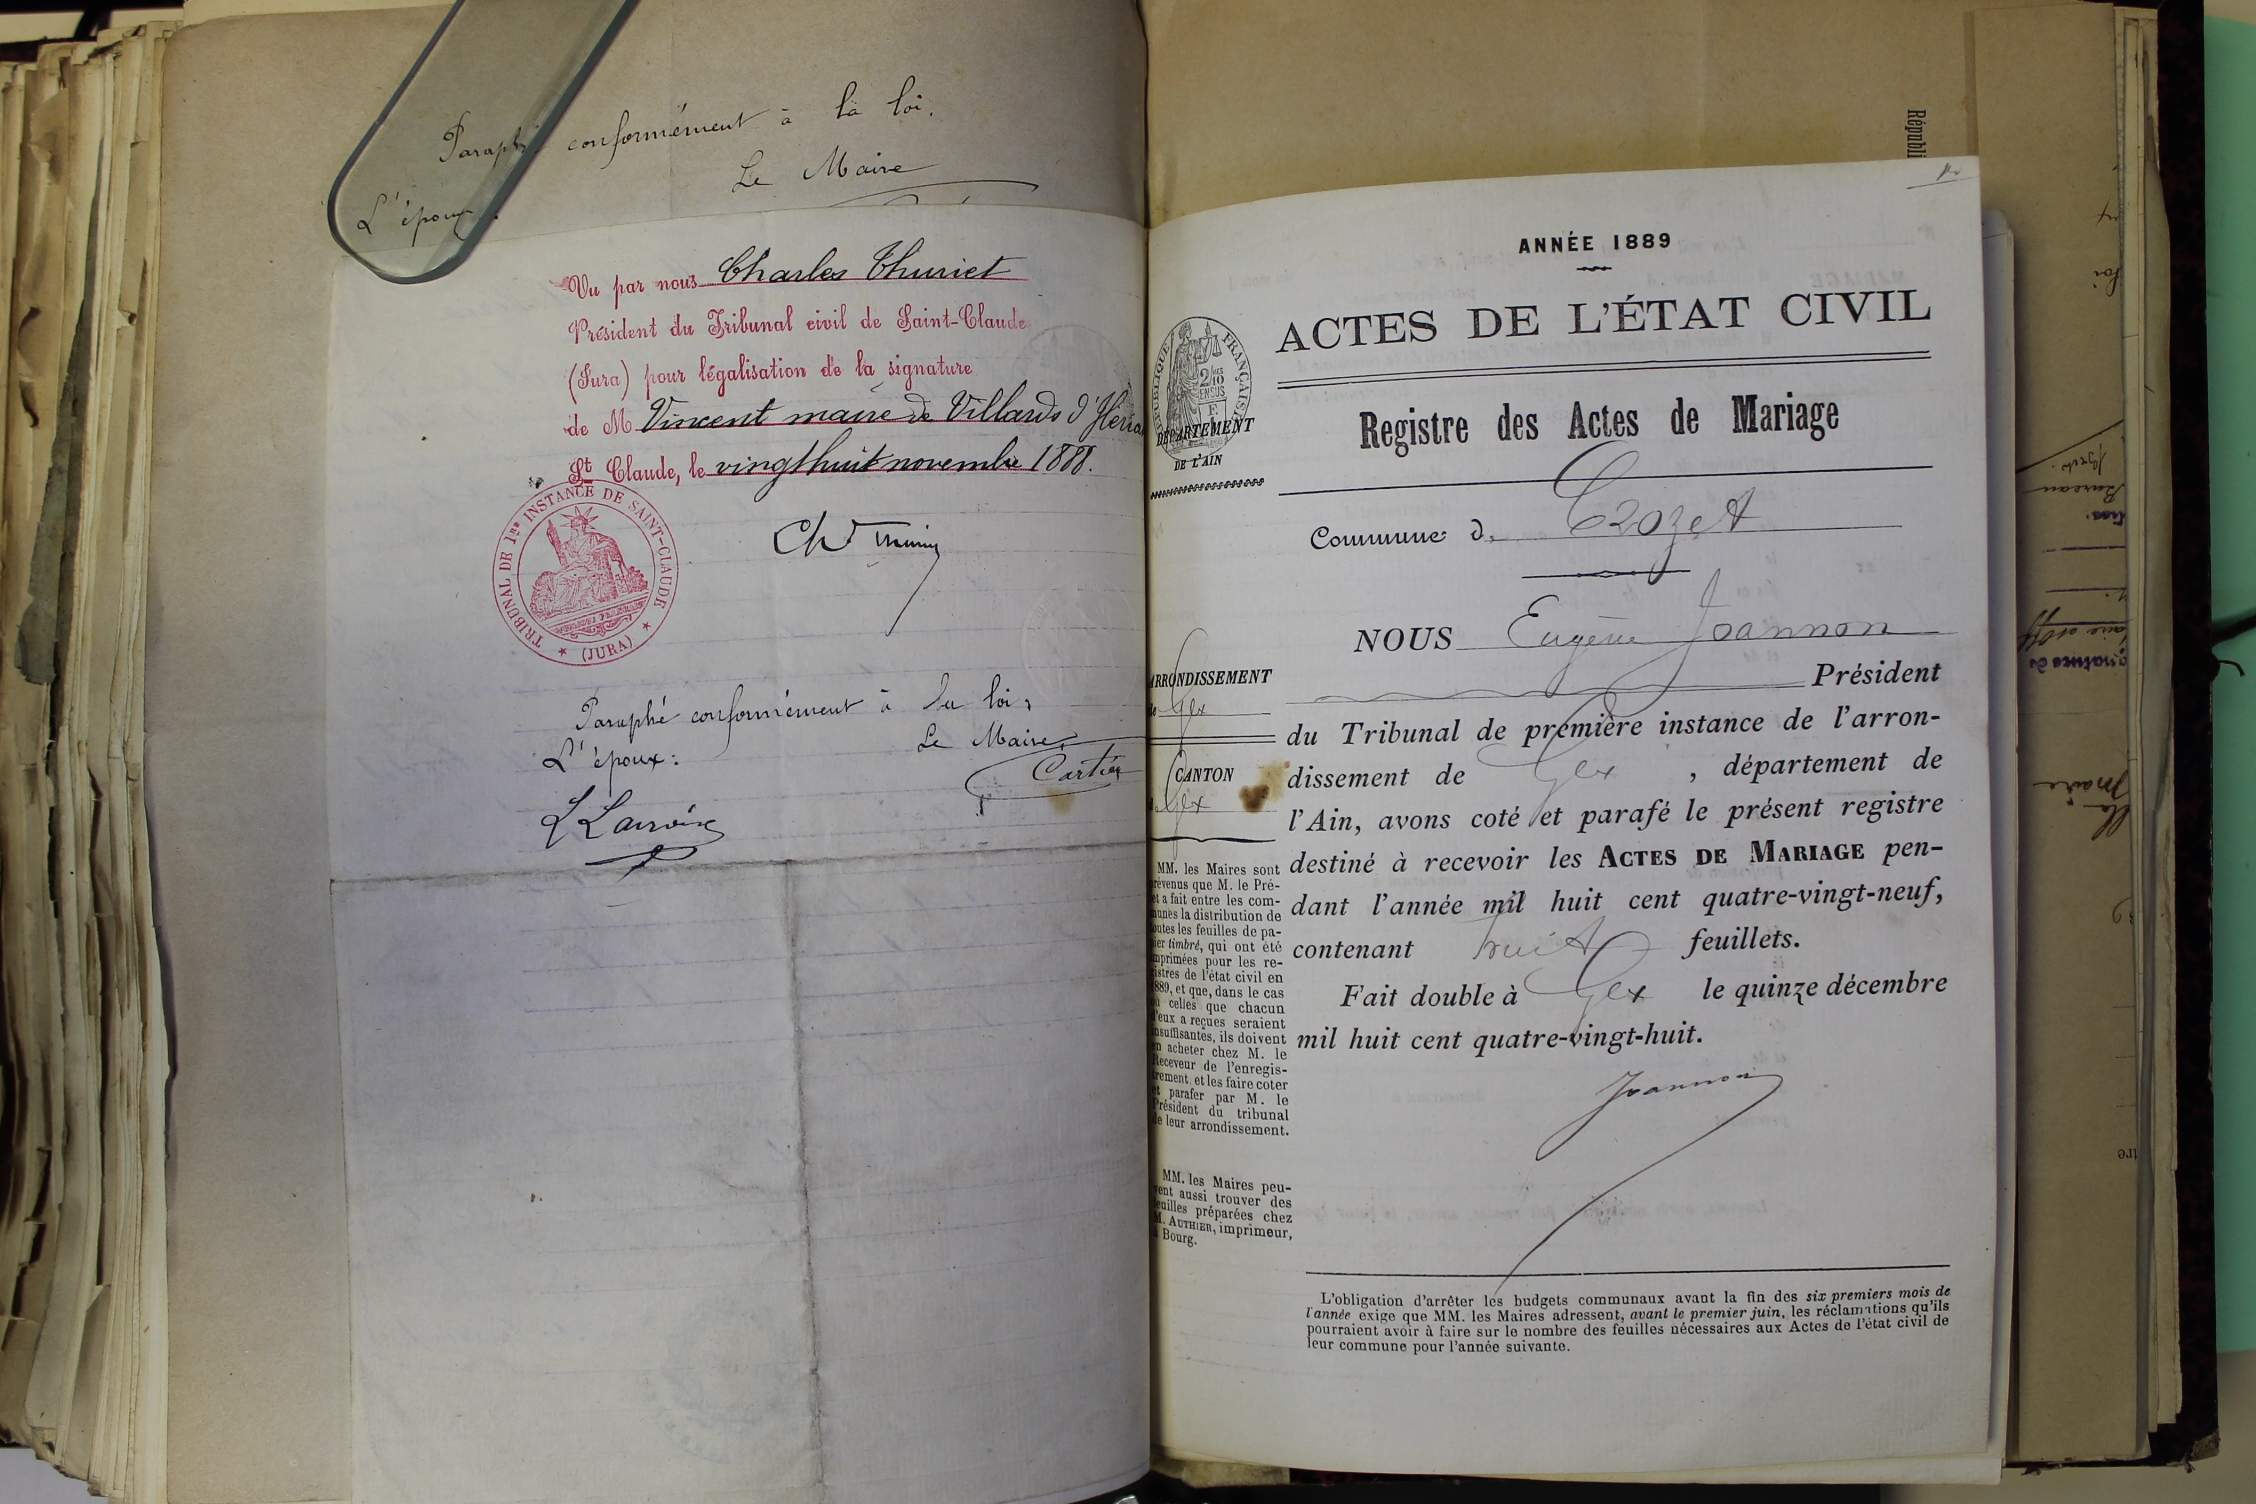 Paraphé conformément à la loi.
Le Maire
L'époux:
Vu par nous Charles Thuriet
Président du Tribunal civil de Saint-Claude
(Jura) pour légalisation de la signature
de M Vincent maire de Villards d'Héria
St Claude, le vingthuit novembre 1888.
TRIBUNAL DE 1re INSTANCE DE SAINT-CLAUDE
★ (JURA) ★
Paraphé conformément à la loi,
Le Maire,
L'époux:
Cartier
Républi
ANNÉE 1889
ACTES DE L'ÉTAT CIVIL
RÉPUBLIQUE FRANÇAISE
2/10
EN SUS
DÉPARTEMENT
DE L'AIN
Registre des Actes de Mariage
Commune d. Crozet
NOUS Eugène Joannon
Président
du Tribunal de première instance de l'arron-
dissement de Gex , département de
l'Ain, avons coté et parafé le présent registre
destiné à recevoir les ACTES DE MARIAGE pen-
dant l'année mil huit cent quatre-vingt-neuf,
contenant huit feuillets.
Fait double à Gex le quinze décembre
mil huit cent quatre-vingt-huit.
Joannon
ARRONDISSEMENT
de Gex
CANTON
Gex
MM. les Maires sont
révenus que M. le Pré-
et a fait entre les com-
munes la distribution de
outes les feuilles de pa-
ier timbré, qui ont été
mprimées pour les re-
istres de l'état civil en
889, et que, dans le cas
ù celles que chacun
'eux a reçues seraient
insuffisantes, ils doivent
n acheter chez M. le
Receveur de l'enregis-
trement, et les faire coter
et parafer par M. le
Président du tribunal
de leur arrondissement.
MM. les Maires peu-
vent aussi trouver des
feuilles préparées chez
M. AUTHIER, imprimeur,
à Bourg.
L'obligation d'arrêter les budgets communaux avant la fin des six premiers mois de
l'année exige que MM. les Maires adressent, avant le premier juin, les réclamations qu'ils
pourraient avoir à faire sur le nombre des feuilles nécessaires aux Actes de l'état civil de
leur commune pour l'année suivante.